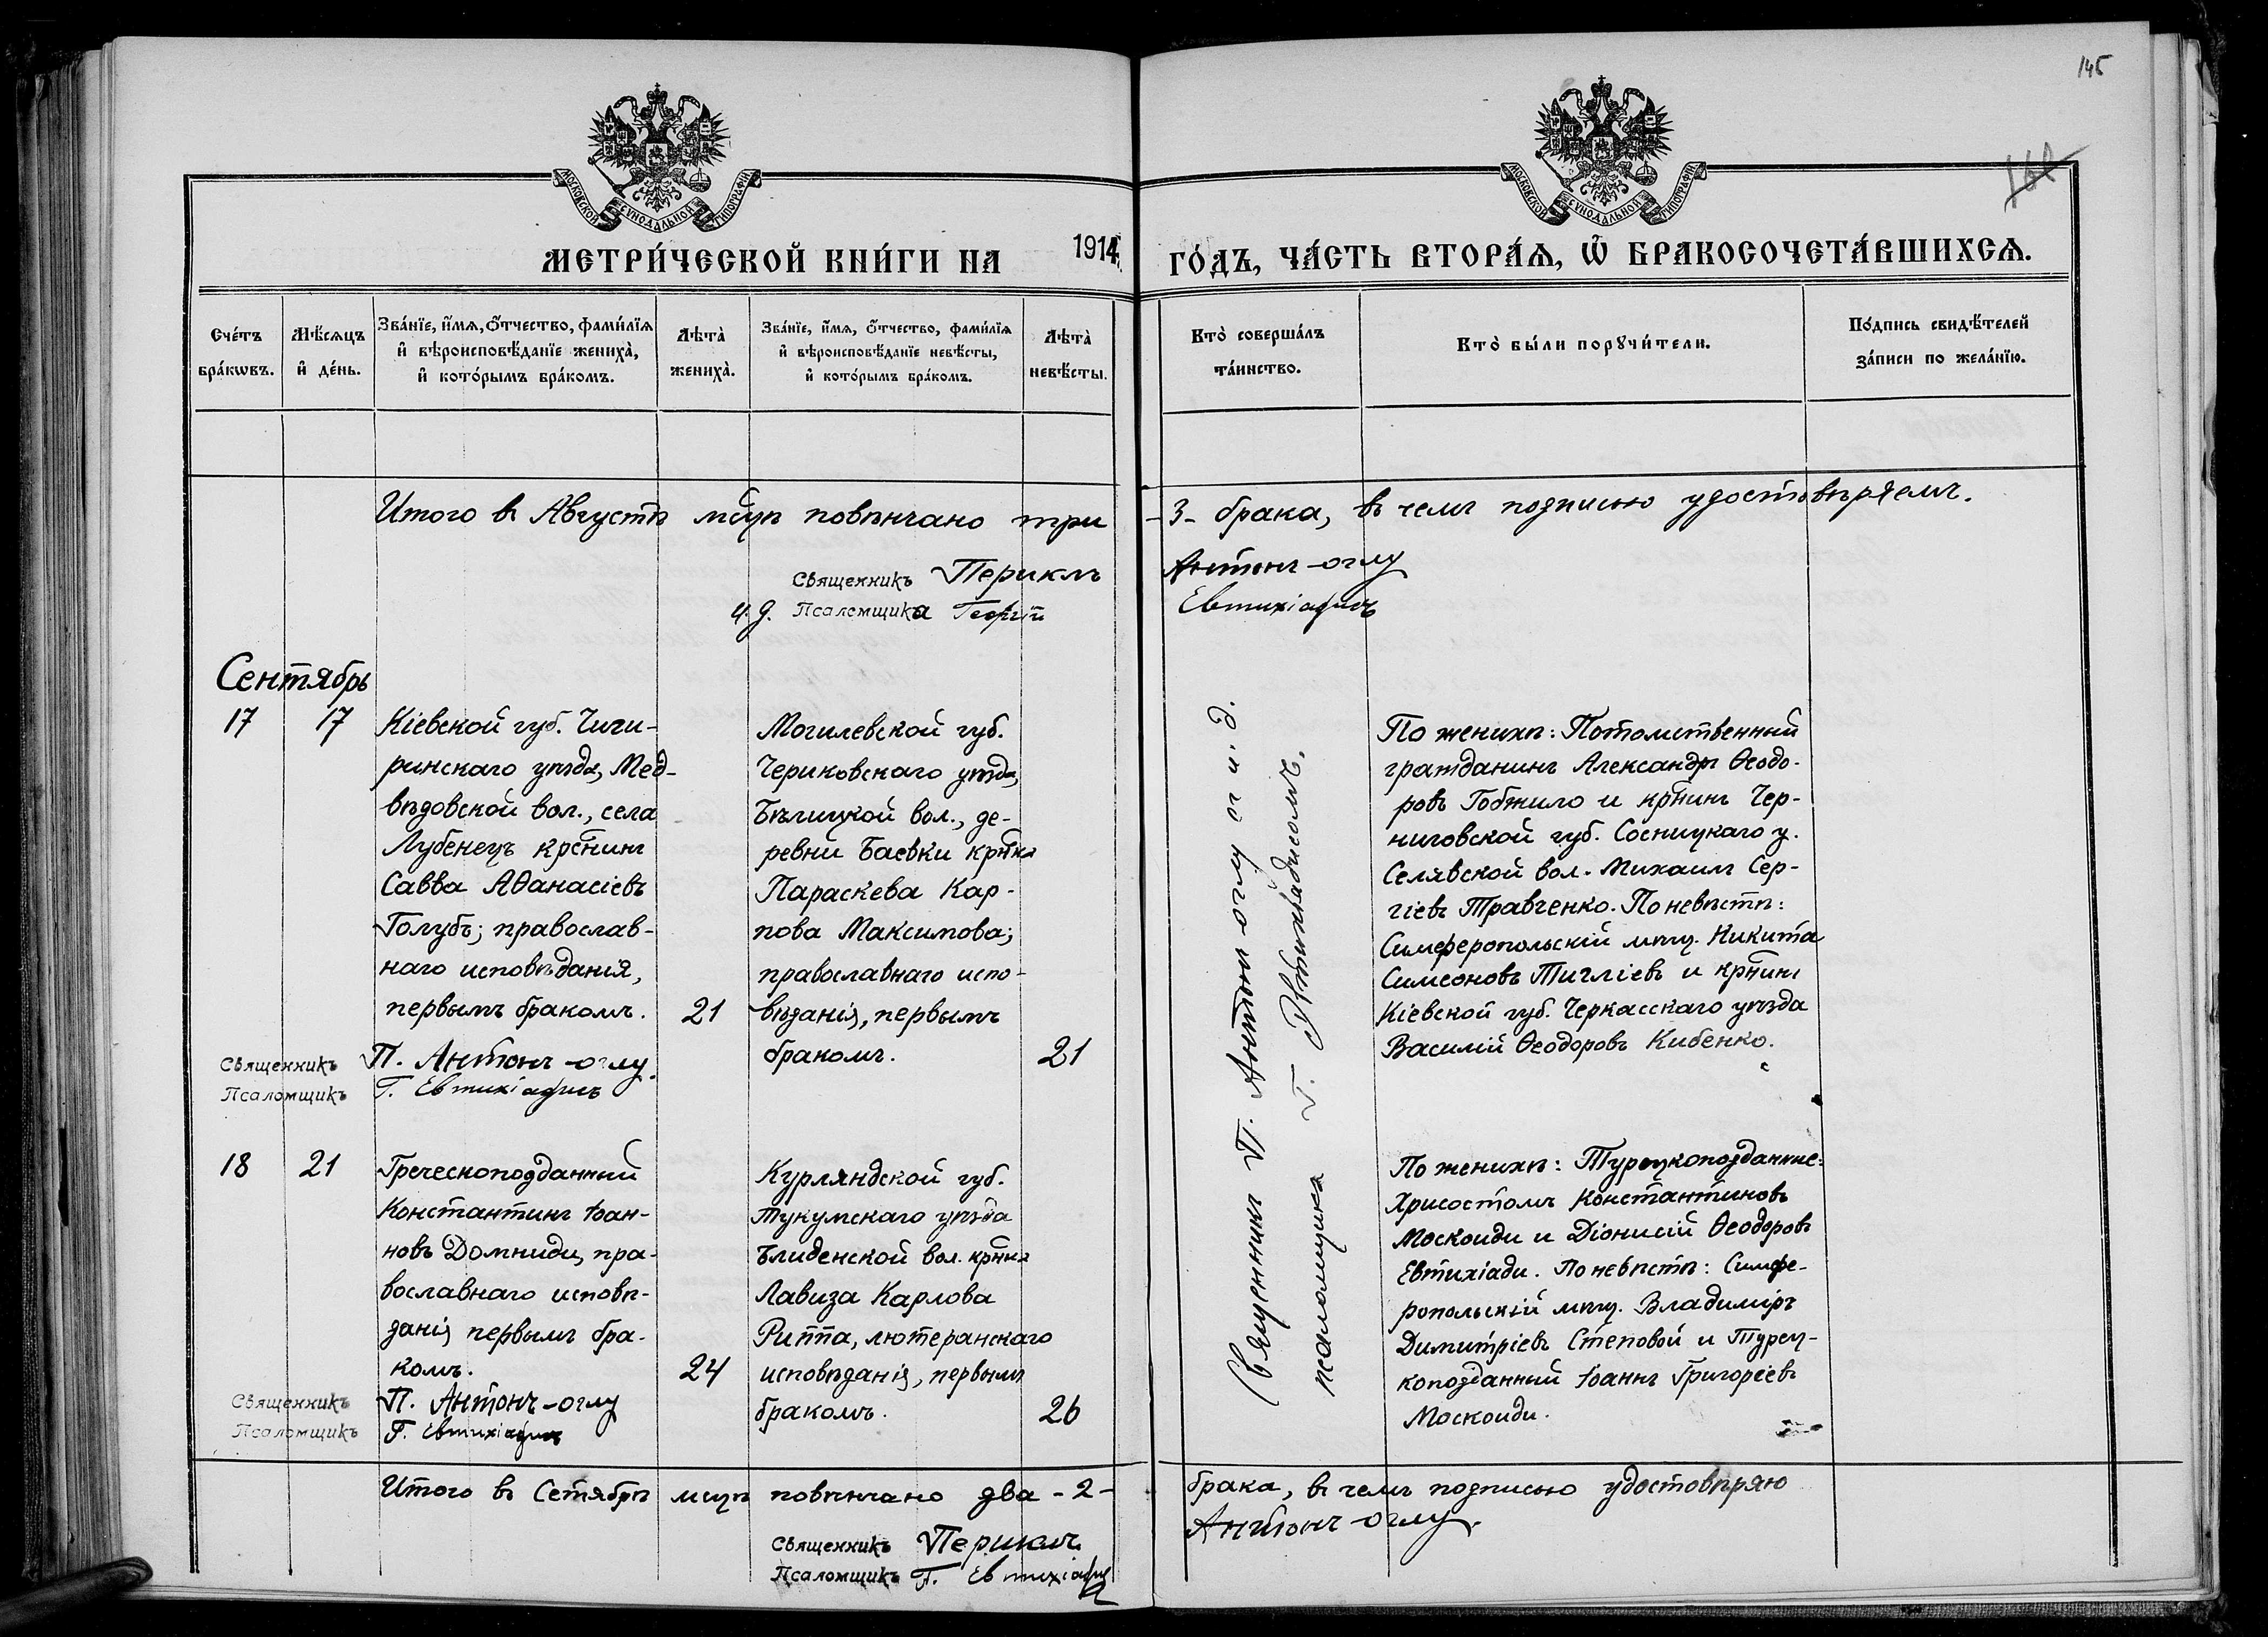 145
МОСКОВСКОЙ СѴНОДАЛЬНОЙ ТИПОГРАФІИ
МОСКОВСКОЙ СѴНОДАЛЬНОЙ ТИПОГРАФІИ
МЕТРИ́ЧЕСКОЙ КНИ́ГИ НА 1914 ГО́ДЪ, ЧА́СТЬ ВТОРА́Ѧ, Ѡ҆ БРАКОСОЧЕТА́ВШИХСѦ.
Сче́тъ
бра́кѡвъ.
Мѣ́сѧцъ
и҆ де́нь.
Зва́нїе, и҆́мѧ, ѻ҆́тчество, фами́лїѧ
и҆ вѣроисповѣ́данїе жениха̀,
и҆ кото́рымъ бра́комъ.
Лѣта̀
жениха̀.
Зва́нїе, и҆́мѧ, ѻ҆́тчество, фами́лїѧ
и҆ вѣроисповѣ́данїе невѣ́сты,
и҆ кото́рымъ бра́комъ.
Лѣта̀
невѣ́сты.
Кто̀ соверша́лъ
та́инство.
Кто̀ бы́ли порꙋчи́тели.
По́дпись свидѣ́телей
за́писи по жела́нїю.
Итого въ Августѣ мсцѣ повѣнчано три -3- брака, въ чемъ подписью удостовѣряемъ.
Священникъ Периклъ Антонъ-оглу
и. д. Псаломщика Георгій Евтихіадисъ
Сентябрь
17
17
Кіевской губ. Чиги-
ринскаго уѣзда, Мед-
вѣдовской вол., села
Лубенецъ крестнинъ
Савва Аѳанасіевъ
Голубъ; православ-
наго исповѣданія,
первымъ бракомъ.
21
Могилевской губ.
Чериковскаго уѣзда,
Бѣлицкой вол., де-
ревни Баевки крнка
Параскева Кар-
пова Максимова;
православнаго испо-
вѣданія, первымъ
бракомъ.
21
Священникъ П. Антонъ-оглу
Псаломщикъ Г. Евтихіадисъ
Священникъ П. Антонъ оглу и и. д.
псаломщика Г. Евтихіадисомъ.
По женихѣ: Потомственный
гражданинъ Александръ Ѳеодо-
ровъ Гобжило и крнинъ Чер-
ниговской губ. Сосницкаго у.
Селявской вол. Михаилъ Сер-
гіевъ Травченко. По невѣстѣ:
Симферопольскій мѣщ. Никита
Симеоновъ Тигліевъ и крнинъ
Кіевской губ. Черкасскаго уѣзда
Василій Ѳеодоровъ Кибенко.
18
21
Греческоподданный
Константинъ Іоан-
новъ Домниди, пра-
вославнаго исповѣ-
данія первымъ бра-
комъ.
24
Курляндской губ.
Тукумскаго уѣзда
Блиденской вол. крнка
Лавиза Карлова
Риппа, лютеранскаго
исповѣданія, первымъ
бракомъ.
26
Священникъ П. Антонъ-оглу
Псаломщикъ Г. Евтихіадисъ
По женихѣ: Турецкоподданные:
Хрисостомъ Константиновъ
Москоиди и Діонисій Ѳеодоровъ
Евтихіади. По невѣстѣ: Симфе-
ропольскій мѣщ. Владиміръ
Димитріевъ Степовой и Турец-
коподданный Іоаннъ Григоріевъ
Москоиди.
Итого въ Сетябрѣ мсцѣ повѣнчано два -2- брака, въ чемъ подписью удостовѣряю
Священникъ Периклъ Антонъ-оглу.
Псаломщикъ Г. Евтихіадис